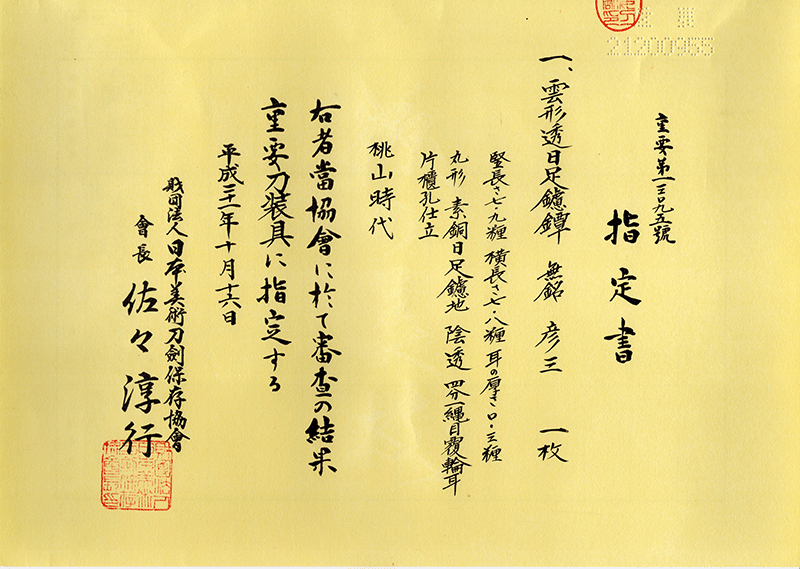 21200955
重要第一三九五號
指定書
一、雲形透日足鑢鐔 無銘 彦三 一枚
竪長さ七・九糎 横長さ七・八糎 耳の厚さ〇・三糎
丸形 素銅日足鑢地 陰透 四分一縄目覆輪耳
片櫃孔仕立
桃山時代
右者當協會に於て審査の結果
重要刀装具に指定する
平成二十一年十月十六日
財団法人日本美術刀劍保存協會
會長 佐々淳行